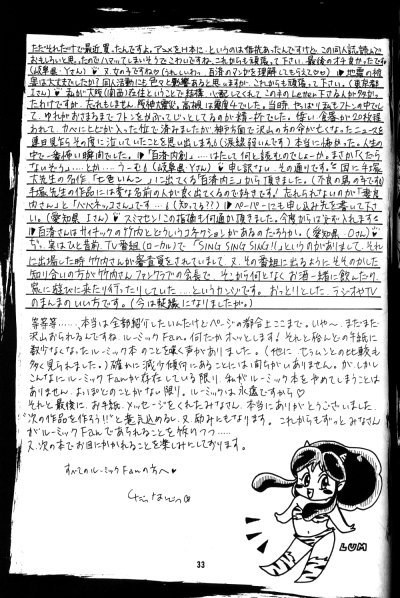 ただそれだけで最近、買ったんですよ。デュメを1本に…というのは相談あったんですけど、この同人誌読んで
おもしろいと思ったのでハマッてしまいそうでこわいですね。これからも頑張って下さい。最後のオチ良かったです
(岐阜県・Yさん) 又、女の子ですね♡(うれしいわっ。百済のマンガを理解してもらえて♡♡) 地震の被
害は大丈夫でしたか？同人活動にも色々と影響あると思いますが、これからも頑張って下さい。(東京都
Iさん) 私が大阪(南西)在住ということで結構、心配してくれてこの手のLetter下さる人が多かっ
たわけですが、忘れもしません阪神大震災。高槻は震度4でした。当時、やっぱり私もフトンの中でし
て、ゆれがおさまるまでフトンをかぶってじっとしてるのが精一杯でした。
われて、カベにヒビが入った位で済みましたが神戸方面で沢山の方が亡くなったニュースを
連日見ながらその度に泣いていたことを思い出します。(涙腺弱いんです)本当に怖かった。人生の
中で一番怖い瞬間でした。「百済内創」……はたして何と読むのでしょーか。まさか「くだら
ないそう」…とか…うーむ(岐阜県・Yさん) 申し訳ない、その通りです。
大先生の名作「七色いんこ」に出てくる「百済の三」から頂きました。
手塚先生の作品には変な名前の人が良く出てくるので好きです。忘れられないのが「東尾
内さん」と「ハハネッコさん」です…。(知ってる？) ペーパーにも申し込み先を書いて下さ
い。(愛知県 Iさん) スミマセン！この指摘も何通か頂きました。今度からは必ず入れます。
百済さんはサイキックの竹内とどういうコネクションがあるのだろうか。(愛知県・Oさん)
実はひと昔前、TV番組(ローカル)で「SING SING SING!」というのがありまして、それ
に出場した時竹内さんが審査員をされていまして、又、その番組に出るようにそそのかした
知り合いの方が竹内さんファンクラブの会長で、そこから何となくお酒一緒に飲んだり、
家に遊びに来たり行ったりしていた…というカンジです。おっとりとした、ラジオやTV
のまんまのいい方です。(今は疎遠になりましたが。)
等等等……、本当は全部紹介したいんだけどページの都合上ここまで。いや〜、まだまだ
沢山おられるんですね、ルーミックFan。何だかホッとします。それと殆んどの手紙に
数少なくなったルーミック本のことを嘆く声がありました。(他にセーラームーンとの比較も
多く見られました。)確かに減少傾向にあることには間ちがいありません。が、しかし
こんなにルーミックFanが存在している限り、私がルーミック本をやめてしまうことは
ありません。よっぽどのことがない限り。ルーミックは永遠ですから♡
それと最後に、お手紙、メッセージをくれたみなさん。本当にありがとうございました。
“次の作品を作ろう!!”と意気込めるし、又、励みにもなります。これからもずっとみなさん
がルーミックFanであられることを祈りつつ……
又、次の本でお目にかかれることを楽しみにしております。
すべてのルーミックFanの方へ♥
くだらないそう
LUM
33